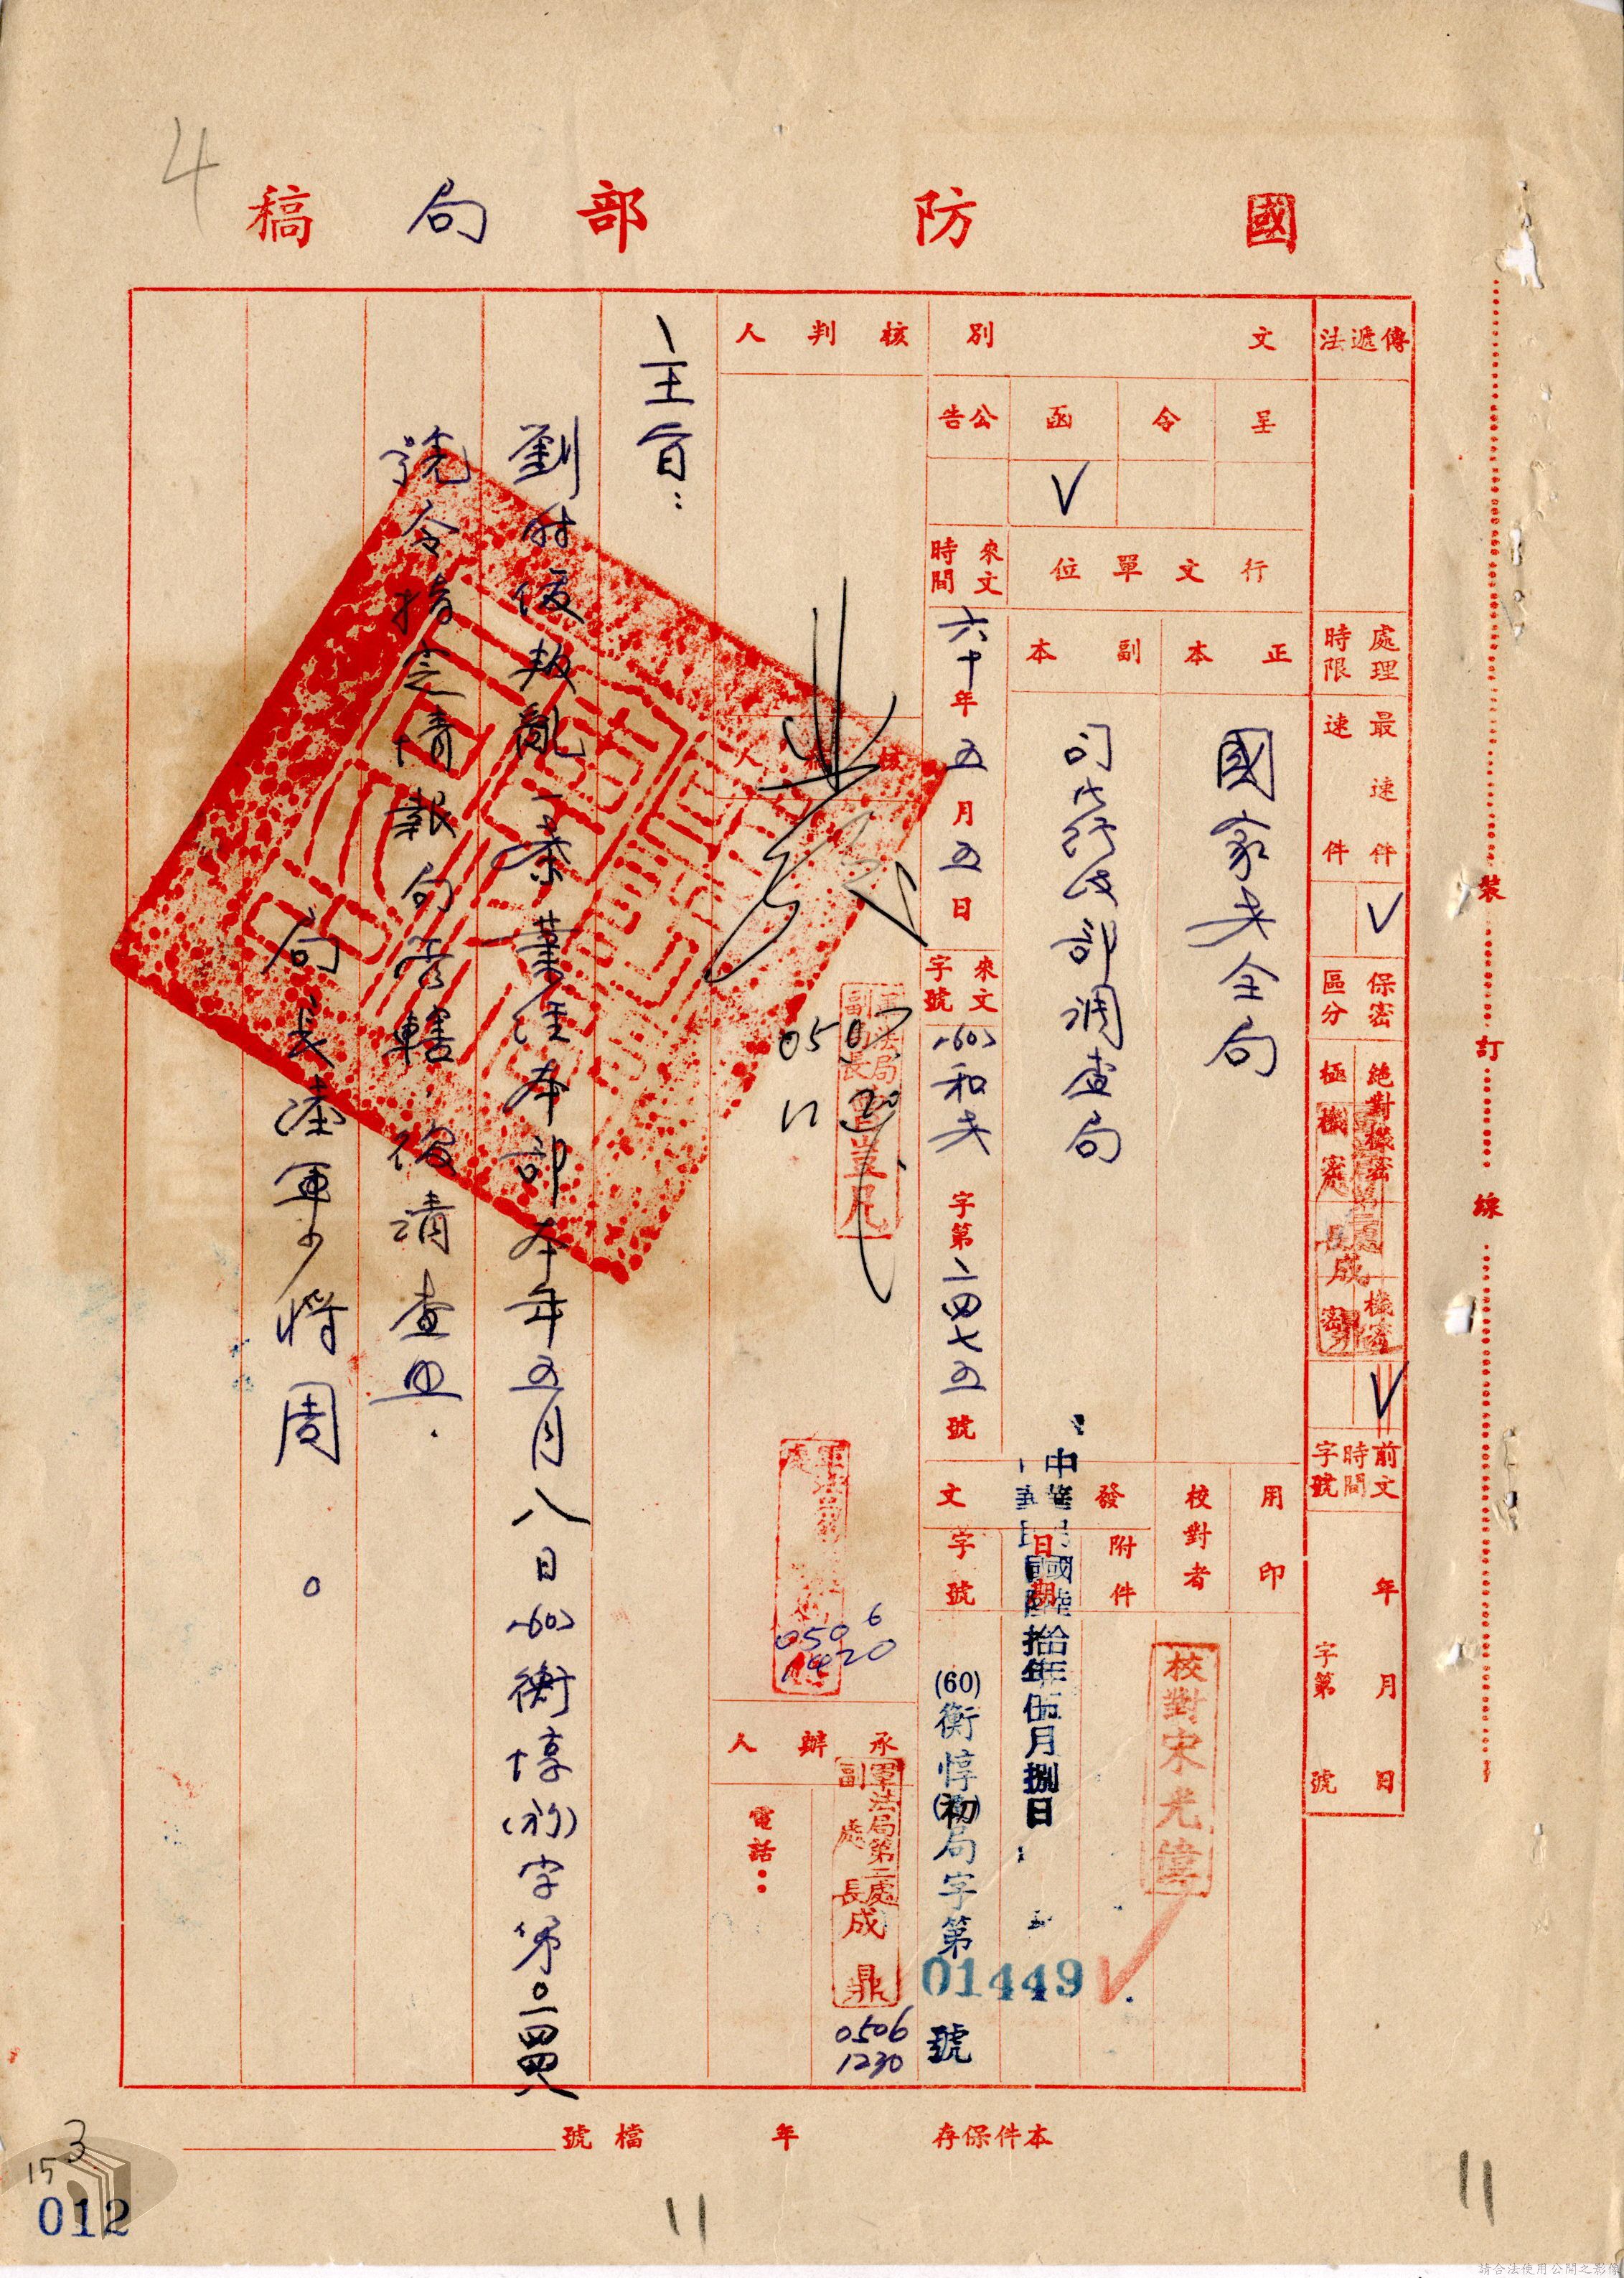 4
國防部局稿
傳遞法
處理時限
最速件
速件
✓
保密區分
絕對機密
極機密
機密
密
✓
前文時間字號
年月日
字第號
文別
呈
令
函
公告
✓
行文單位
正本
國家安全局
副本
司法行政部調查局
來文時間
六十年五月五日
來文字號
(60)和安字第二四七五號
用印
校對者
校對宋光偉
發文
附件
日期
中華民國陸拾年伍月捌日
字號
(60)衡惇(初)局字第01449號
核判人
核稿人
軍法局副局長
0507
承辦人
軍法局第二處副處長成鼎
0506
1230
0506
1420
電話：
主旨：
劉
叛亂一案業經本部本年五月八日(60)衡惇(初)字第0一四四八
號令指定情報局管轄，復請查照．
局長陸軍少將周。
本件保存年
檔號
裝訂線
3
15
012
11
11
請合法使用公開之影像